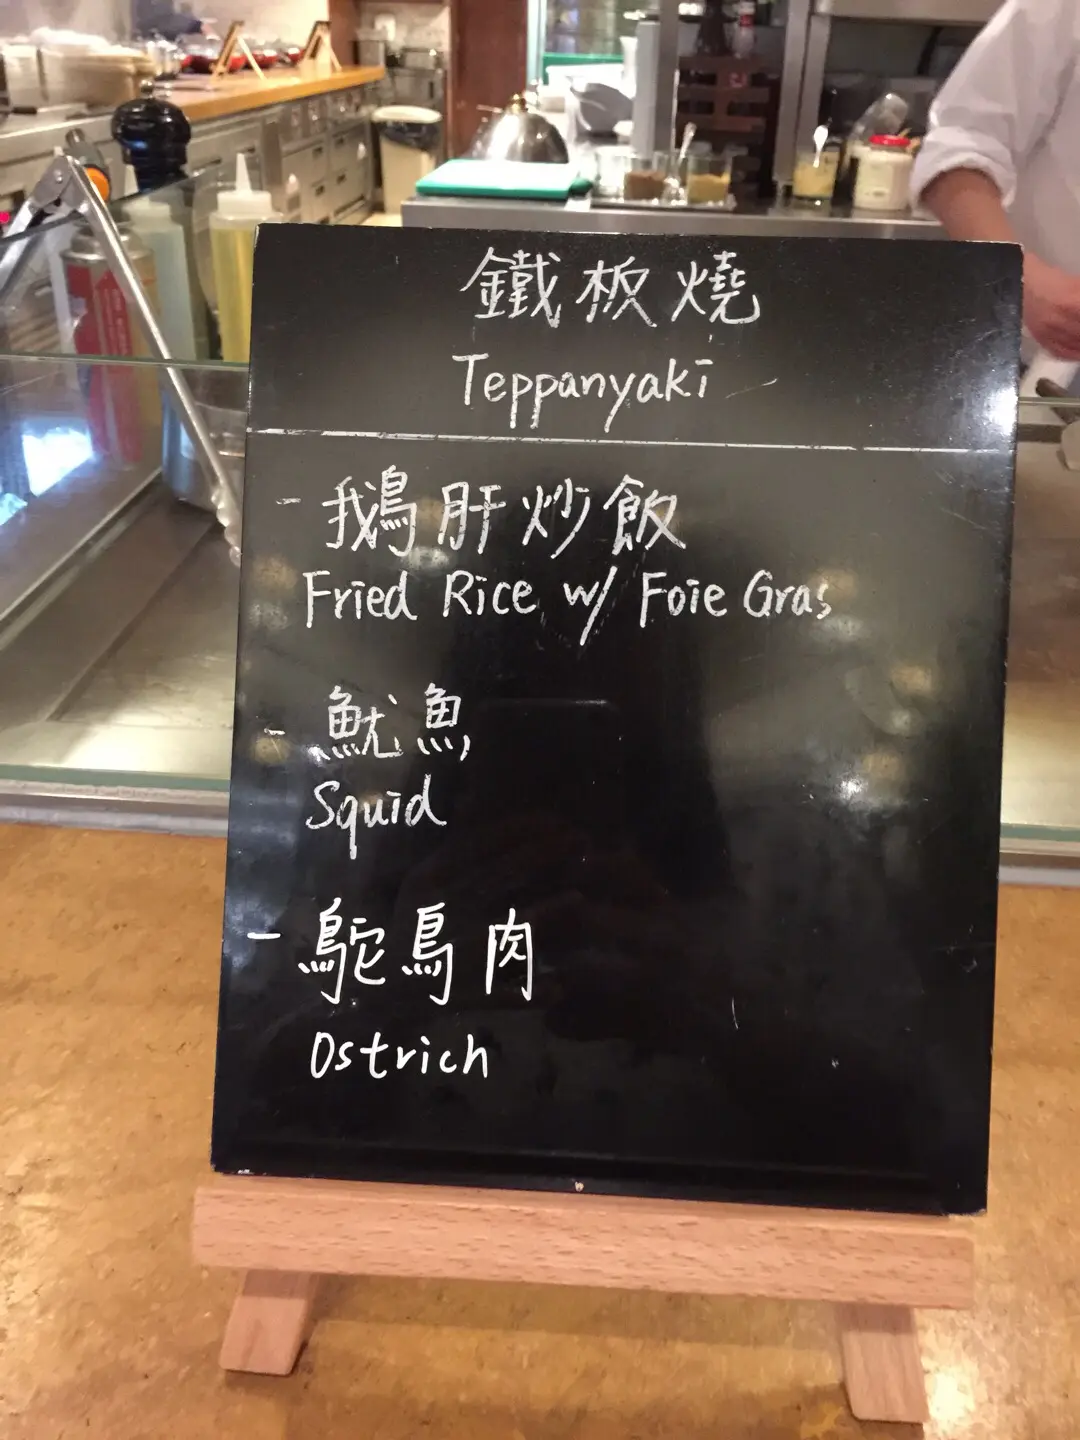 鐵板燒
Teppanyaki
- 鵝肝炒飯
Fried Rice w/ Foie Gras
- 魷魚
Squid
- 鴕鳥肉
Ostrich